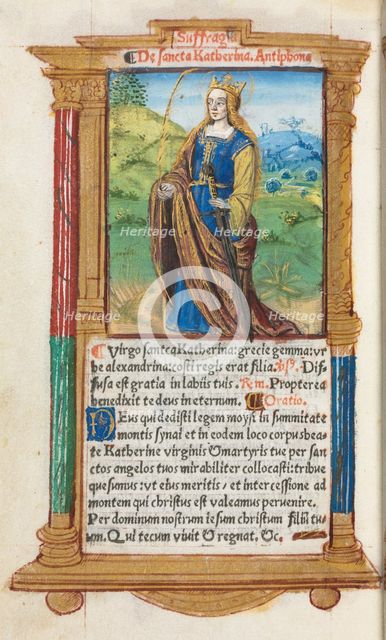 Suffragia
De sancta Katherina. Antiphona
Virgo sancta Katherina: grecie gemma: vr
be alexandrina: costi regis erat filia. vs. Dif
fusa est gratia in labiis tuis. Rm. Propterea
benedixit te deus in eternum. Oratio.
Deus qui dedisti legem moysi in summitate
montis synai et in eodem loco corpus bea-
te Katherine virginis & martyris tue per san
ctos angelos tuos mirabiliter collocasti: tribue
quesumus: vt eius meritis et intercessione ad
montem qui christus est valeamus peruenire.
Per dominum nostrum iesum christum filiũ tu-
um. Qui tecum viuit & regnat. &c.
Heritage
Heritage
Heritage
Heritage
Heritage
Heritage
Heritage